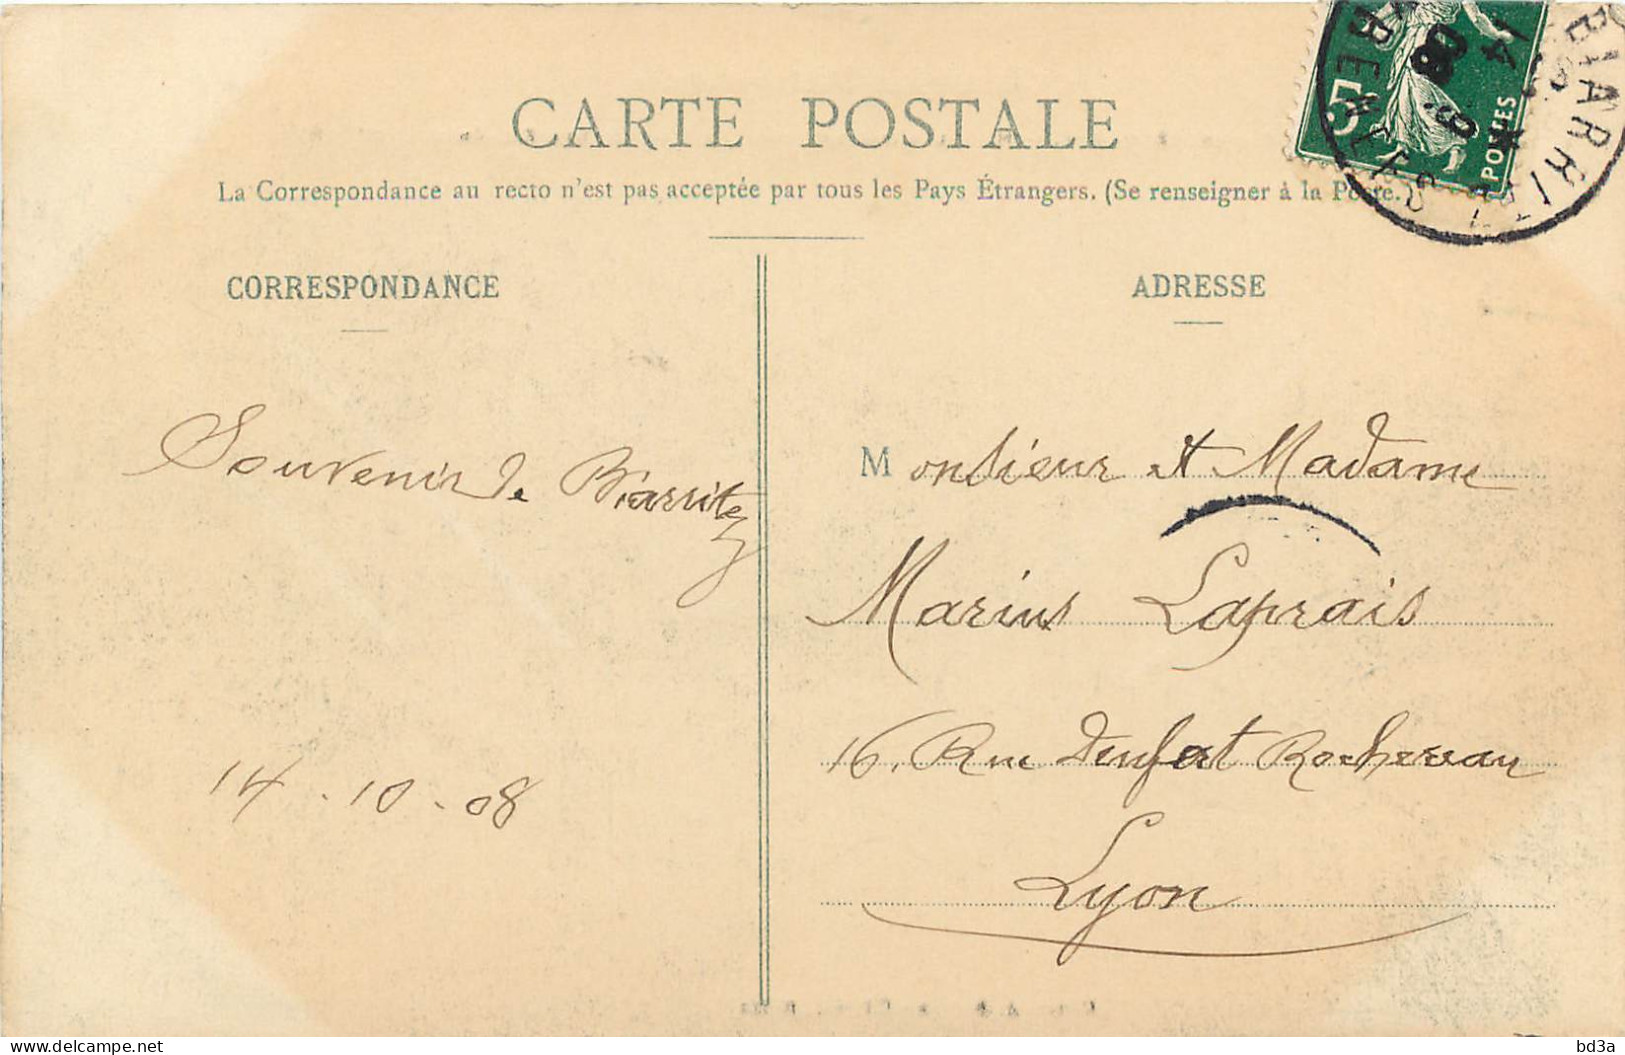 CARTE POSTALE
La Correspondance au recto n'est pas acceptée par tous les Pays Étrangers. (Se renseigner à la Poste.)
CORRESPONDANCE
ADRESSE
5
POSTES
BIARRITZ
14
08
Souvenir de Biarritz
14 . 10 . 08
Monsieur et Madame
Marius Laprais
16, Rue Denfert Rochereau
Lyon
delcampe.net
bd3a